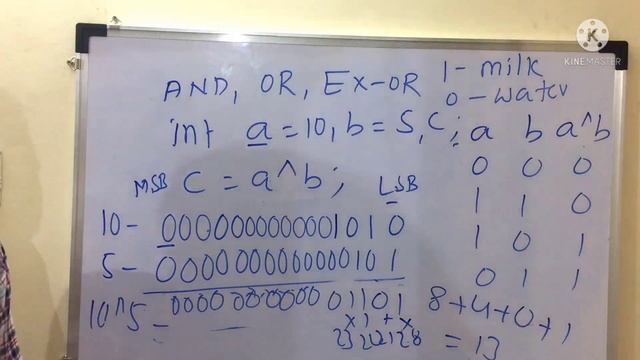 KINEMASTER
AND, OR, EX-OR
1 - milk
0 - water
int a = 10, b = 5, c;
a b a^b
0 0 0
1 1 0
1 0 1
0 1 1
MSB C = a^b; LSB
10 - 0000000000001010
5 - 0000000000000101
10^5 -
01101
8+4+0+1
= 13